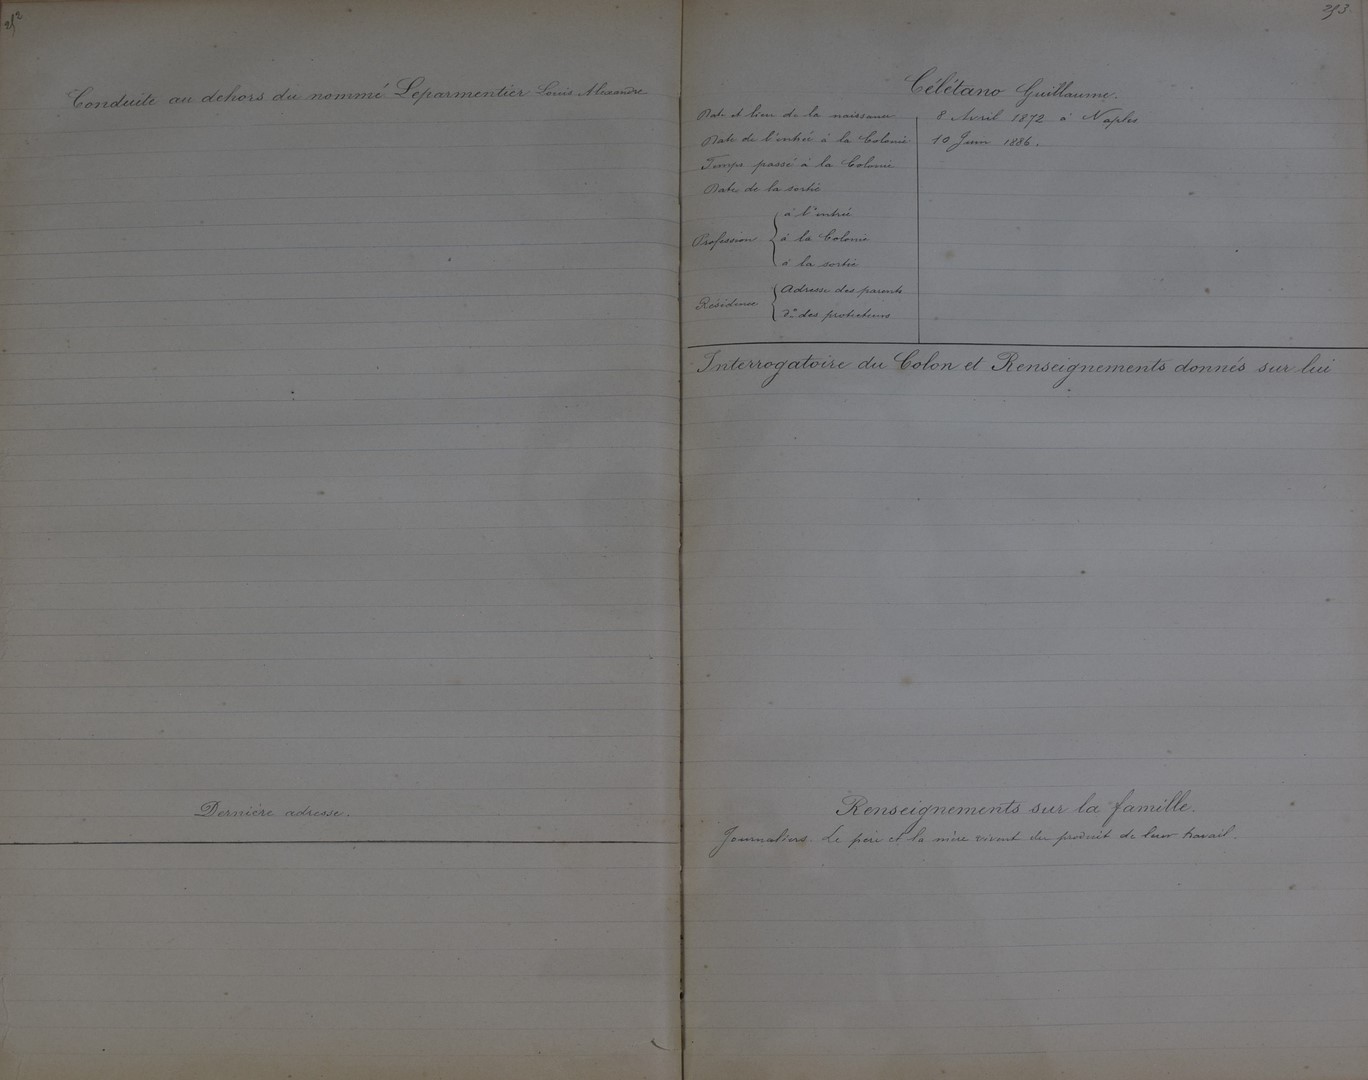 252
Conduite au dehors du nommé Leparmentier Louis Alexandre
Dernière adresse.
253.
Célétano Guillaume.
Date et lieu de la naissance 8 Avril 1872 à Naples
Date de l'entrée à la Colonie 10 Juin 1886.
Temps passé à la Colonie
Date de la sortie
Profession
à l'entrée
à la Colonie
à la sortie
Résidence
Adresse des parents
do des protecteurs
Interrogatoire du Colon et Renseignements donnés sur lui
Renseignements sur la famille.
Journaliers. Le père et la mère vivent du produit de leur travail.